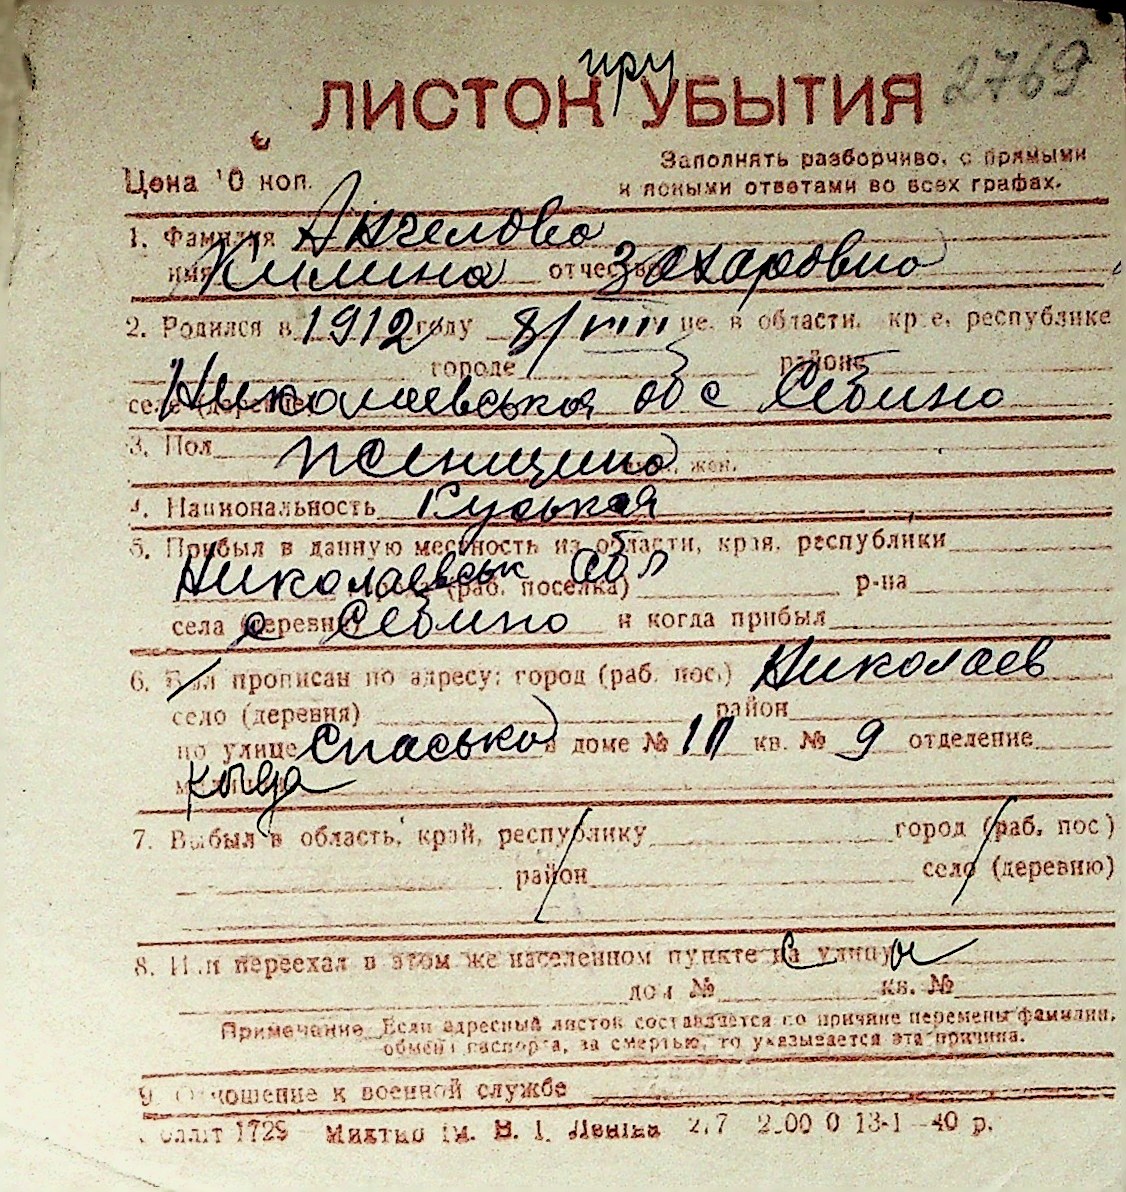 при 2769
ЛИСТОК УБЫТИЯ
Заполнять разборчиво, с прямыми
Цена 10 коп. и ясными ответами во всех графах.
1. Фамилия Ангелова
имя Килина отчество Захаровна
2. Родился в 1912 году 8/VIII це, в области, кр е, республике
городе районе
селе (деревне) Николаевськая обл с Себино
3. Пол женщина жен.
4. Национальность Руськая
5. Прибыл в данную местность из области, края, республики
Николаевськ обл (раб. поселка) р-на
села (деревни) с Себино и когда прибыл
6. Был прописан по адресу: город (раб. пос.) Николаев
село (деревня) район
по улице Спаська в доме № 1П кв. № 9 отделение
когда
7. Выбыл в область, край, республику город (раб. пос)
район село (деревню)
8. Или переехал в этом же населенном пункте на с улицу ы
дом № кв. №
Примечание Если адресный листок составляется по причине перемены фамилии,
обмен паспорта, за смертью, то указывается эта причина.
9. Отношение к военной службе
1729 В. І. Леніна 2.00 0 13-1—40 р.